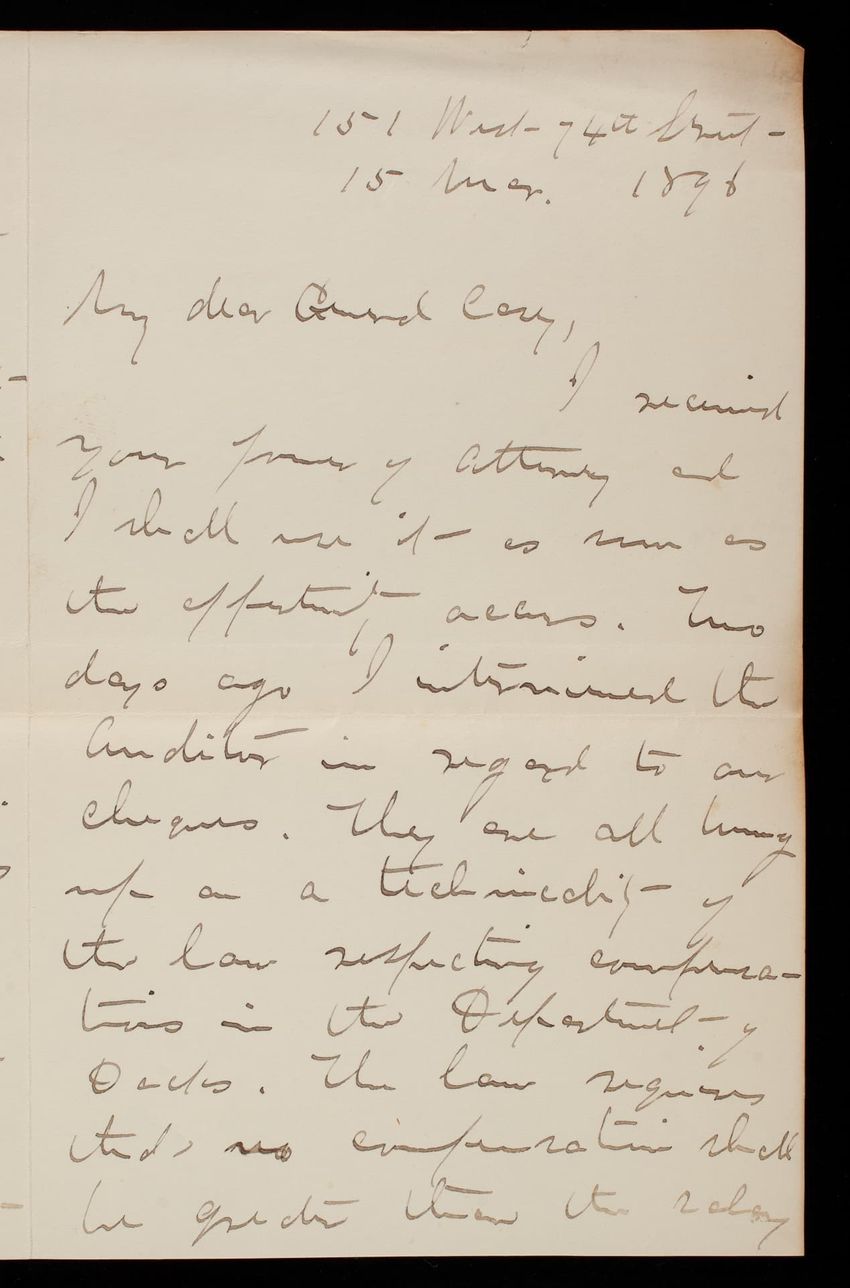 151 West 74th Street
15 Mar. 1896
My dear General Casey,
I received
your power of attorney and
I shall use it as soon as
the opportunity occurs. Two
days ago I interviewed the
Auditor in regard to our
cheques. They are all hung
up on a technicality of
the law respecting compensa-
tions in the Department of
Docks. The law requires
that no compensation shall
be greater than the salary